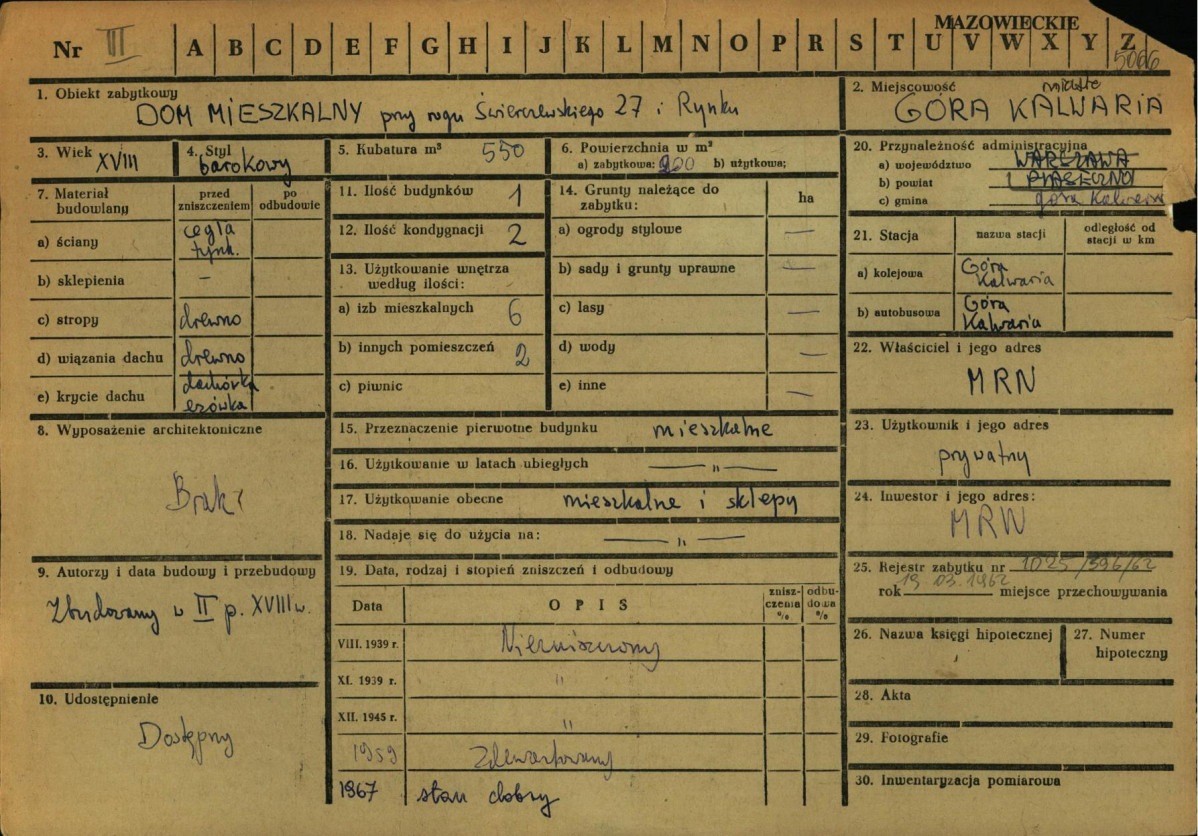 MAZOWIECKIE
Nr III A B C D E F G H I J K L M N O P R S T U V W X Y Z
5066
1. Obiekt zabytkowy
DOM MIESZKALNY przy rogu Świerczewskiego 27 i Rynku
2. Miejscowość miasto
GÓRA KALWARIA
3. Wiek XVIII
4. Styl
barokowy
5. Kubatura m³ 550
6. Powierzchnia w m²
a) zabytkowa: 220 b) użytkowa:
20. Przynależność administracyjna
a) województwo WARSZAWA
b) powiat PIASECZNO
c) gmina Góra Kalwaria
7. Materiał budowlany
przed zniszczeniem
po odbudowie
a) ściany cegła tynk.
b) sklepienia –
c) stropy drewno
d) wiązania dachu drewno
e) krycie dachu dachówka esówka
11. Ilość budynków 1
12. Ilość kondygnacji 2
13. Użytkowanie wnętrza
według ilości:
a) izb mieszkalnych 6
b) innych pomieszczeń 2
c) piwnic
14. Grunty należące do
zabytku: ha
a) ogrody stylowe —
b) sady i grunty uprawne —
c) lasy —
d) wody —
e) inne —
21. Stacja nazwa stacji odległość od stacji w km
a) kolejowa Góra Kalwaria
b) autobusowa Góra Kalwaria
22. Właściciel i jego adres
MRN
8. Wyposażenie architektoniczne
Brak
15. Przeznaczenie pierwotne budynku mieszkalne
16. Użytkowanie w latach ubiegłych — " —
17. Użytkowanie obecne mieszkalne i sklepy
18. Nadaje się do użycia na: — " —
23. Użytkownik i jego adres
prywatny
24. Inwestor i jego adres:
MRN
9. Autorzy i data budowy i przebudowy
Zbudowany w II p. XVIII w.
19. Data, rodzaj i stopień zniszczeń i odbudowy
Data OPIS zniszczenia % odbudowa %
VIII. 1939 r. Niezniszczony
XI. 1939 r. "
XII. 1945 r. "
1959 Zdewastowany
1967 stan dobry
25. Rejestr zabytku nr 1025/396/62
rok 19 03. 1962 miejsce przechowywania
26. Nazwa księgi hipotecznej
27. Numer
hipoteczny
10. Udostępnienie
Dostępny
28. Akta
29. Fotografie
30. Inwentaryzacja pomiarowa